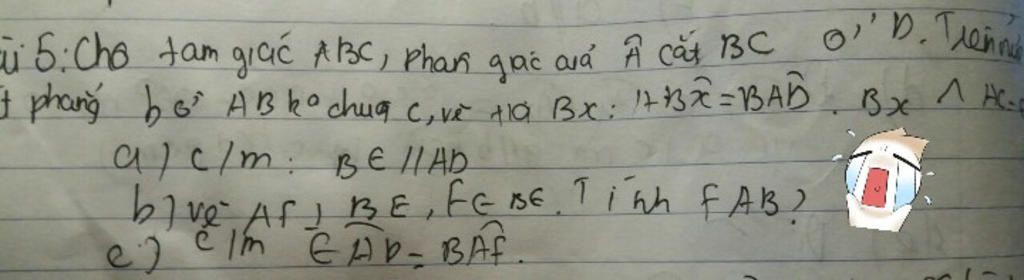 5: Cho tam giác ABC, phân giác của Â cắt BC ở D. Trên
phẳng bờ AB ko chứa C, vẽ tia Bx: ABx = BAD. Bx ∩ AC =
a) c/m: BE // AD
b) vẽ AF ⊥ BE, F ∈ BE. Tính FAB?
c) c/m EAD = BAF.